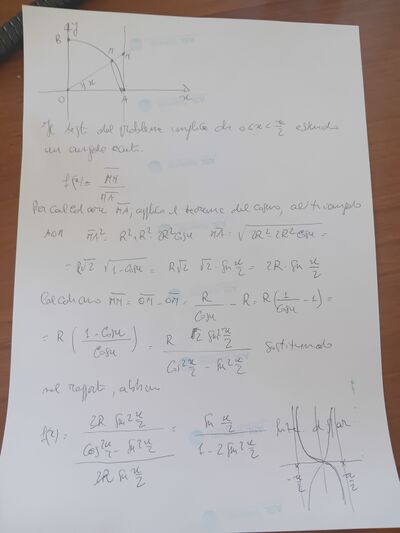 y
B
M
N
x
O
A
x
Il testo del problema implica che 0<x<π/2 essendo
un angolo acuto.
f(x) = MN/MA
Per calcolare MA, applico il teorema del coseno, al triangolo
AOM MA² = R²+R²-2R²Cosx MA = √(2R²-2R²Cosx) =
= R√2 √(1-Cosx) = R√2 √2·Sin x/2 = 2R·Sin x/2
Calcoliamo MN = ON - OM = R/Cosx - R = R(1/Cosx - 1) =
= R (1-Cosx / Cosx) = R 2 Sin² x/2 / Cos² x/2 - Sin² x/2 sostituendo
nel rapporto, abbiamo
f(x) = 2R Sin² x/2 / Cos² x/2 - Sin² x/2 / 2R Sin x/2 = Sin x/2 / 1-2Sin² x/2
-π/2
π/2